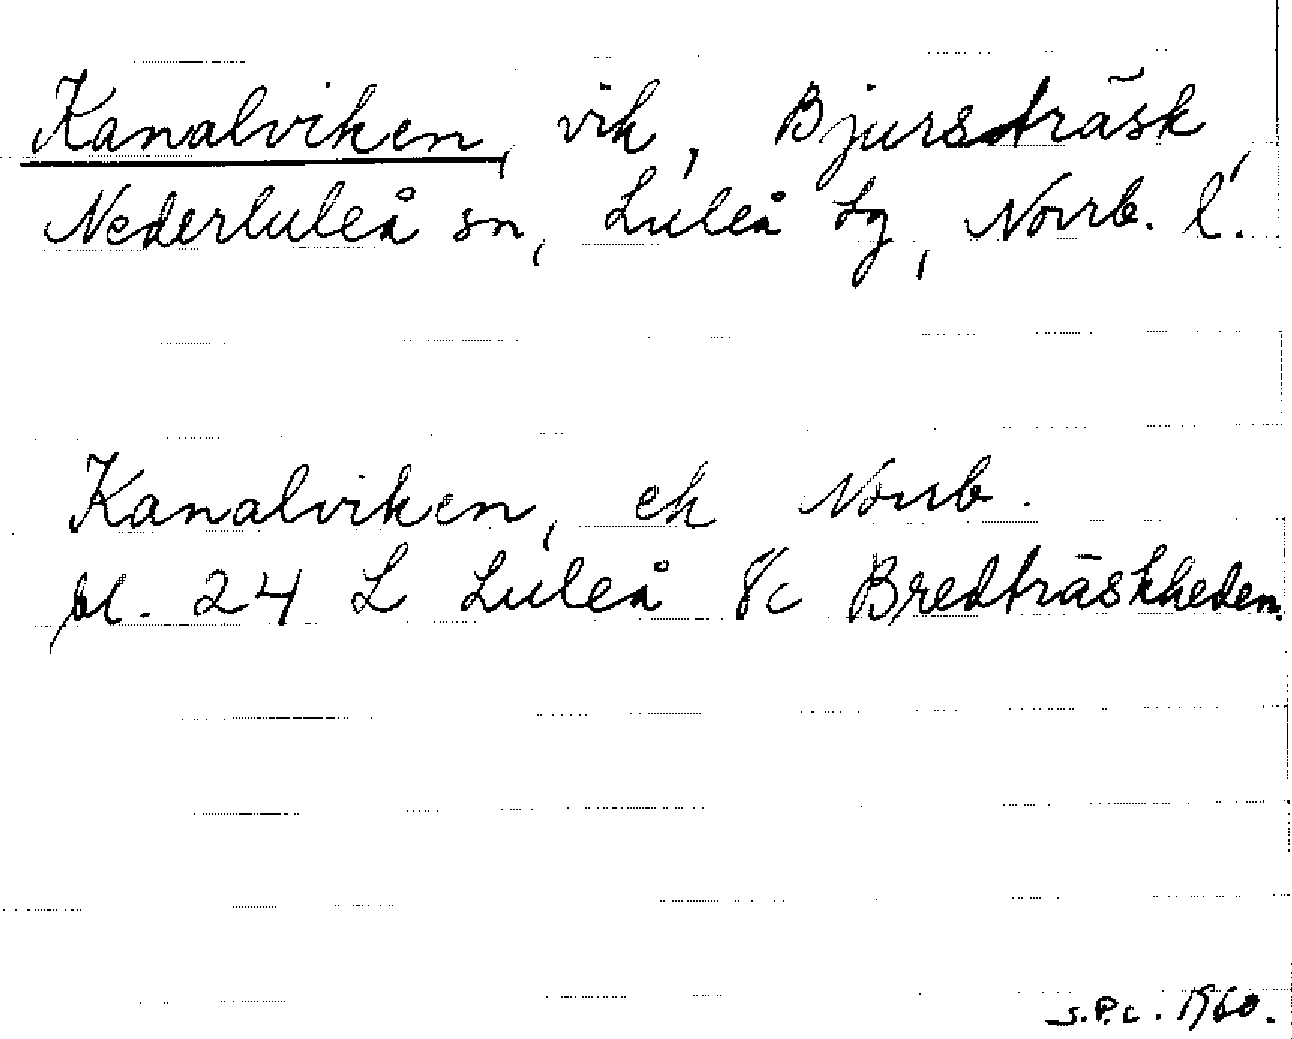 Kanalviken, vik, Bjursträsk,
Nederluleå sn, Luleå lg, Norrb. l.
Kanalviken, ek Norrb.
bl. 24 L Luleå 8c Bredträskheden.
S.P.C. 1960.